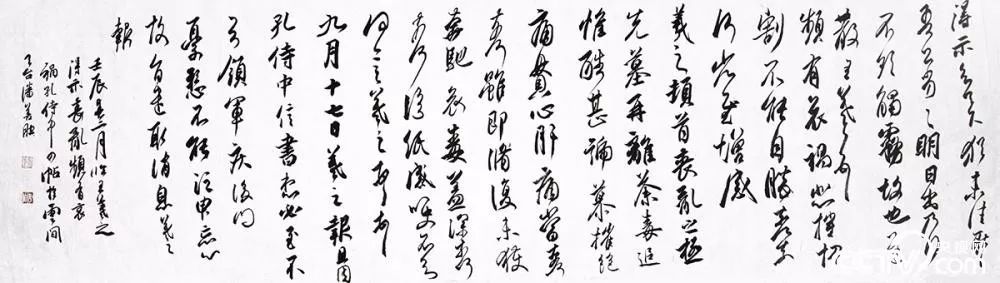 得示知足下猶未佳耿
吾亦劣之明日出乃行
不欲觸霧故也遲
散王羲之頓首
頻有哀禍悲摧切
割不能自勝奈何
何省慰增感
羲之頓首喪亂之極
先墓再離荼毒追
惟酷甚號慕摧絕
痛貫心肝痛當奈
奈何雖即脩復未獲
奔馳哀毒益深奈
奈何臨紙感哽不知
何言羲之頓首
九月十七日羲之報且因
孔侍中信書想必至不
知領軍疾後問
憂懸不能須臾忘心
故旨遣取消息羲之
報
壬辰春二月臨王羲之
得示喪亂頻有哀
禍孔侍中四帖於雲間
潘善助
CCTV.com